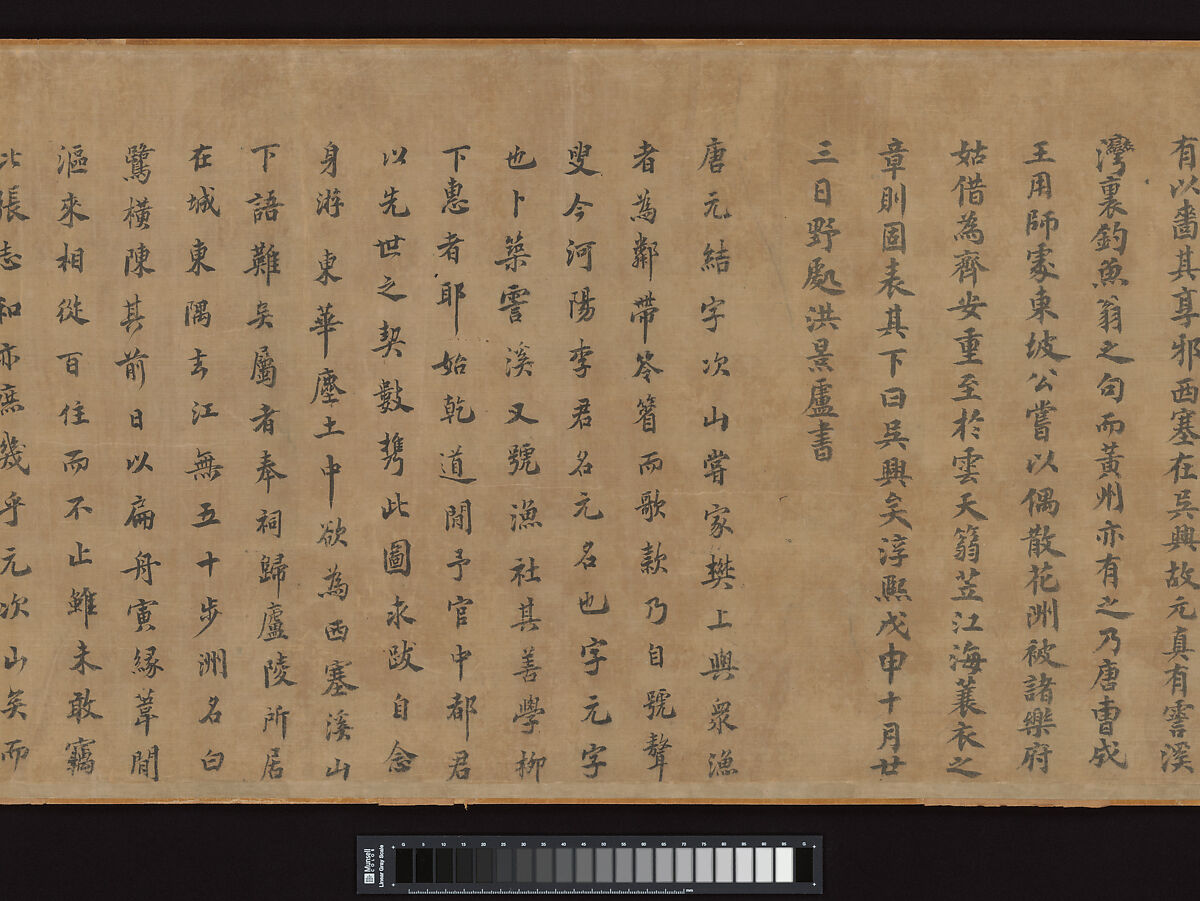 有以嗇其享邪西塞在吳興故元真有霅溪
灣裏釣魚翁之句而黃州亦有之乃唐曹成
王用師處東坡公嘗以偶散花洲被諸樂府
姑借為齊安重至於雲天篛笠江海蓑衣之
章則固表其下曰吳興矣淳熙戊申十月廿
三日野處洪景盧書
唐元結字次山嘗家樊上與眾漁
者為鄰帶笭箵而歌款乃自號聱
叟今河陽李君名元名也字元字
也卜築霅溪又號漁社其善學柳
下惠者耶始乾道間予官中都君
以先世之契數携此圖求跋自念
身游東華塵土中欲為西塞溪山
下語難矣屬者奉祠歸廬陵所居
在城東隅去江無五十步洲名白
鷺橫陳其前日以扁舟寅緣葦間
漚來相從百住而不止雖未敢竊
比張志和亦庶幾乎元次山矣而
Munsell COLOR
Linear Gray Scale
G 5 10 15 20 25 30 35 40 45 50 55 60 65 70 75 80 85 90 95 G
mm